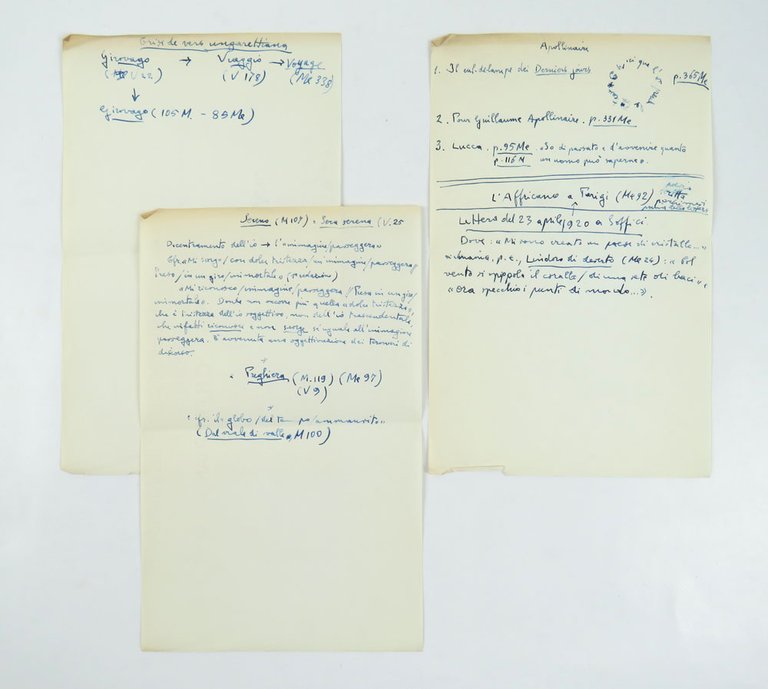 Crisi de vers ungarettiana
Girovago → Viaggio → Voyage
(V 22) (V 178) (Me 338)
↓
Girovago (105 M. - 85 Me)
Sereno (M 107) = Sera serena (V. 25
Decentramento dell'io → l'«immagine/passeggera»
con dolce tristezza/un'immagine/passeggera/
Presa/in un giro/immortale»
«Mi riconosco/immagine/passeggera//Presa in un giro/
immortale». Donde non occorre più quella «dolce tristezza»,
che è tristezza dell'io soggettivo, non dell'io trascendentale,
che infatti riconosce e non si uguale all'immagine
passeggera. È avvenuta una oggettivazione dei termini di
discorso.
Preghiera (M. 119) (Me 97)
(V 9)
globo/del
(Dal viale di valle, M 100)
Apollinaire
1. Il cul-de-lampe dei Derniers jours p. 365 Me
2. Pour Guillaume Apollinaire. p. 331 Me
3. Lucca. p. 95 Me «So di passato e d'avvenire quanto
p. 116 M un uomo può saperne».
L'Affricano a Parigi (Me 92)
Lettera del 23 aprile 1920 a Soffici
Dove: «Mi sono creato un paese di cristallo...»
richiama, p.e., Lindoro di deserto (Me 26): «Col
vento si spippola il corallo/di una sete di baci»,
«Ora specchio i punti di mondo...».